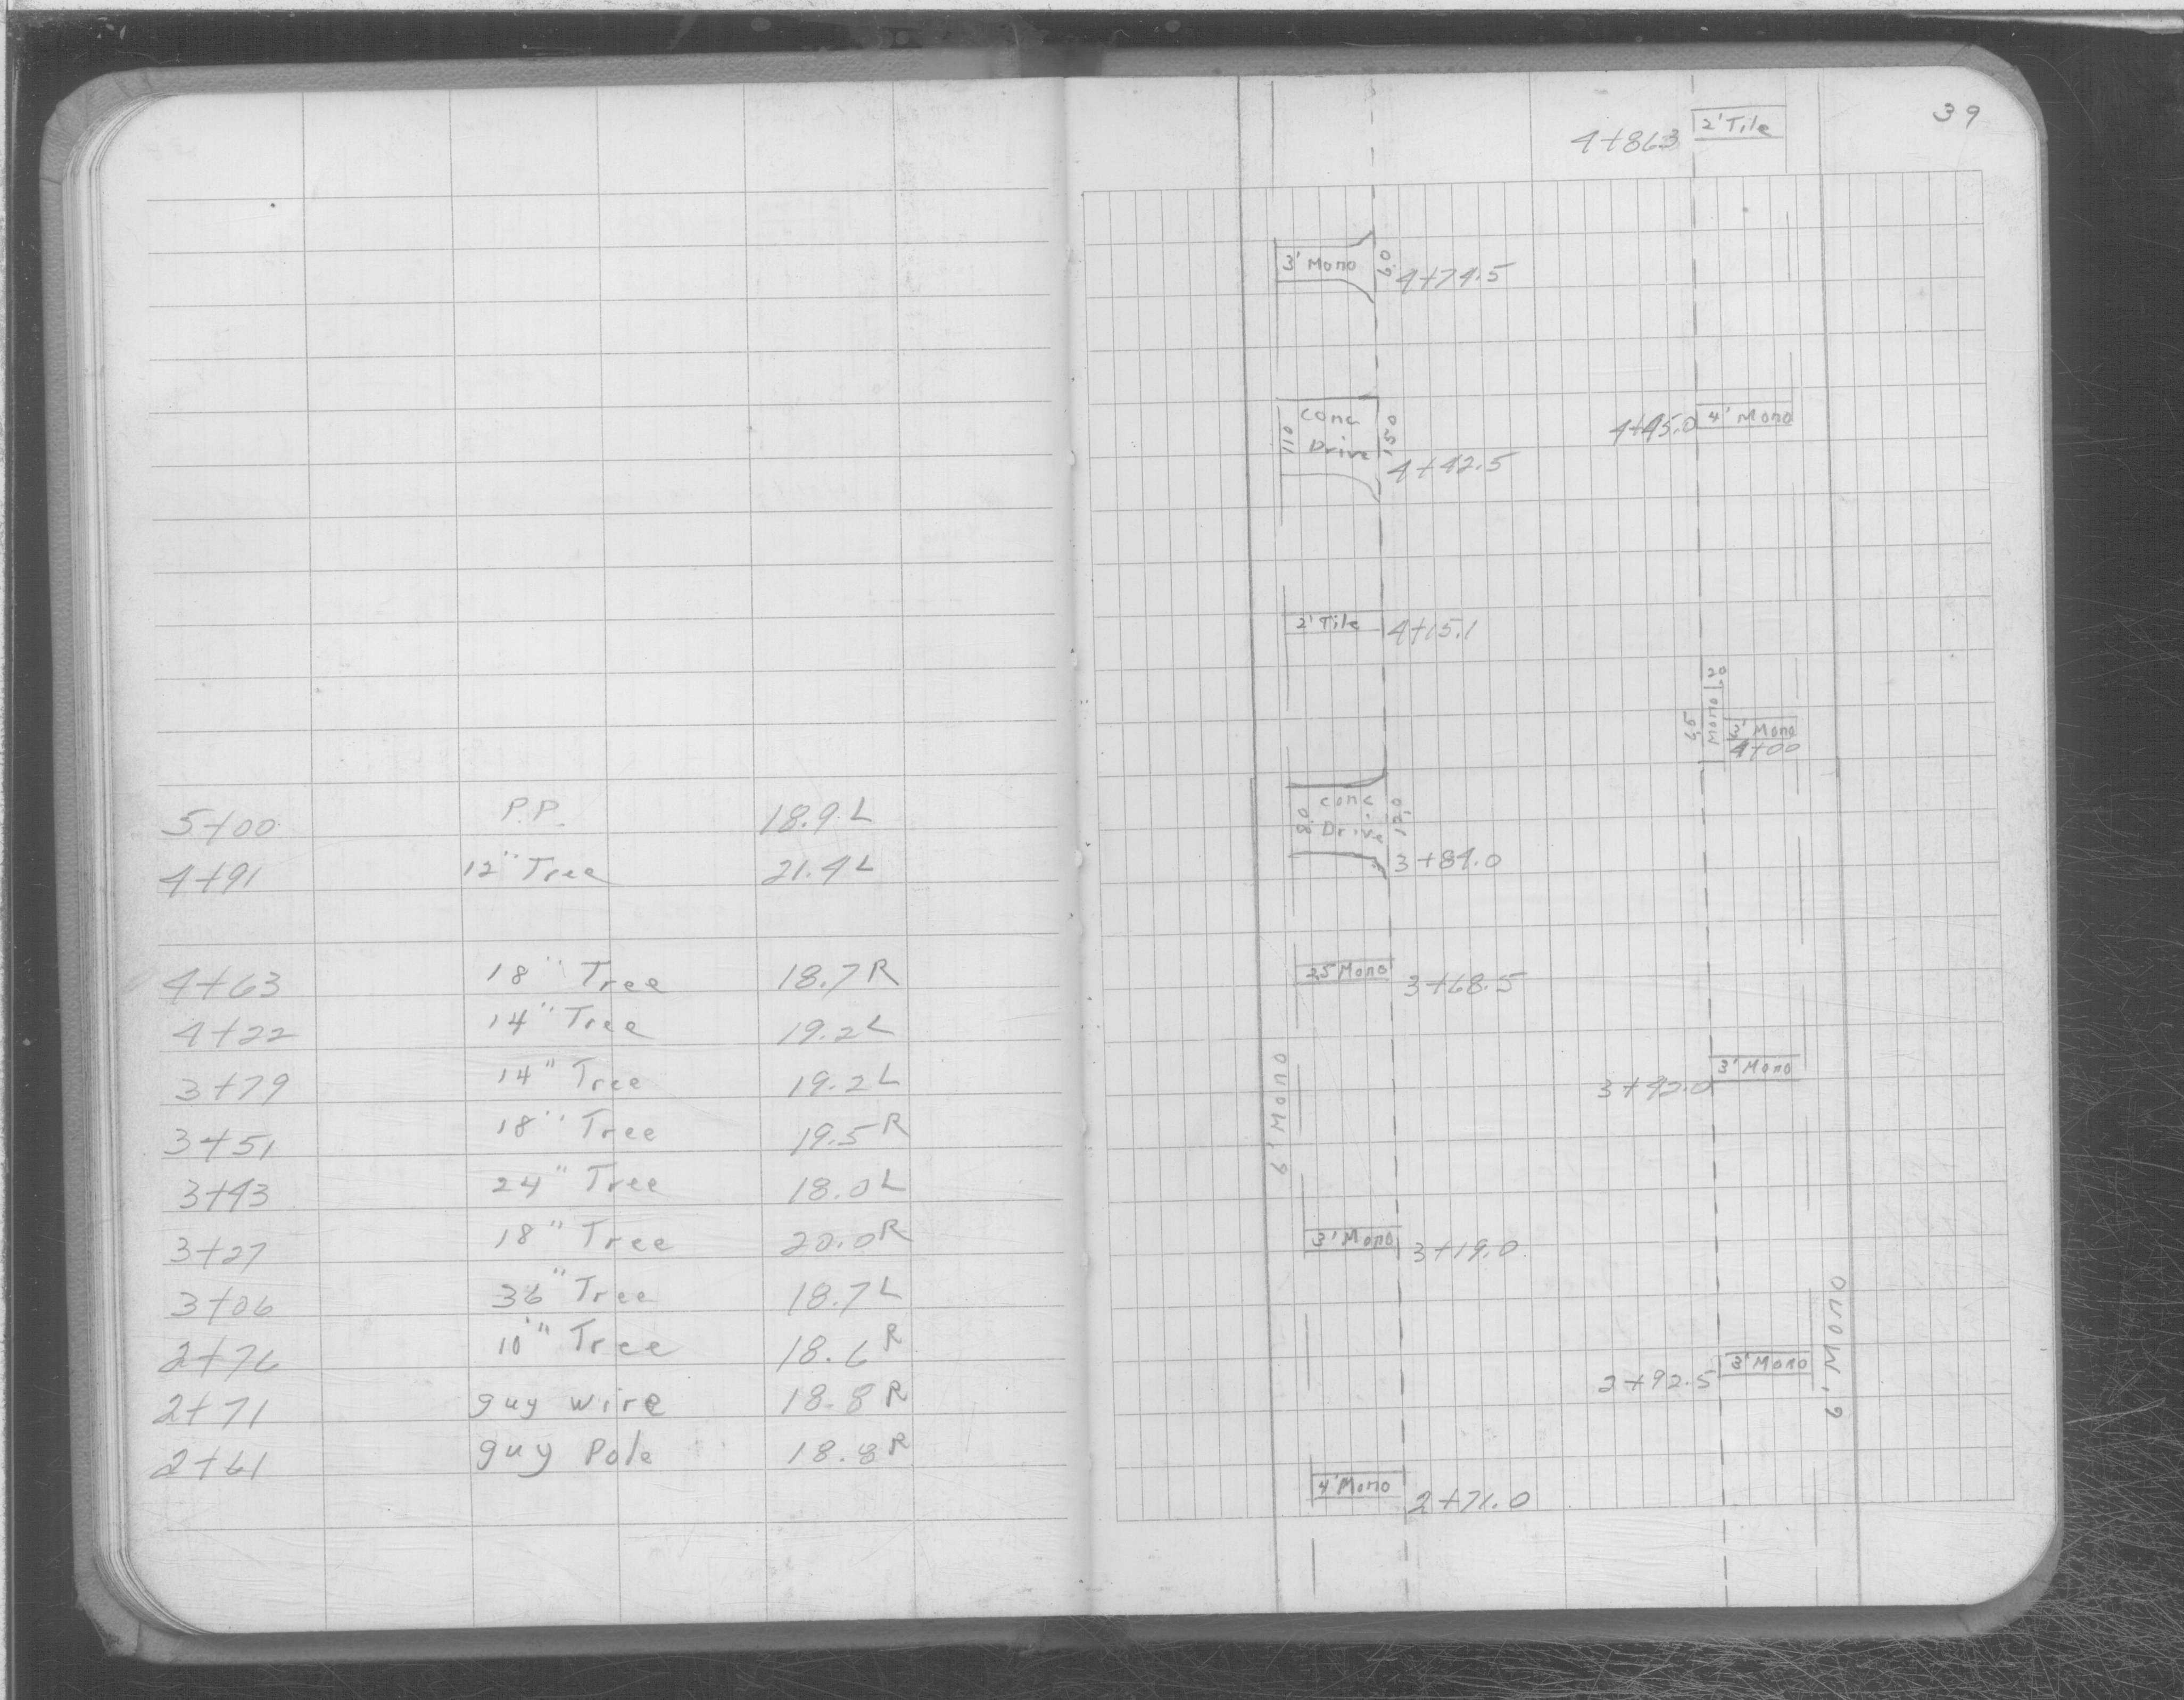 5+00 P.P. 18.9 L
4+91 12" Tree 21.4 L
4+63 18" Tree 18.7 R
4+22 14" Tree 19.2 L
3+79 14" Tree 19.2 L
3+51 18" Tree 19.5 R
3+43 24" Tree 18.0 L
3+27 18" Tree 20.0 R
3+06 36" Tree 18.7 L
2+76 10" Tree 18.6 R
2+71 guy wire 18.8 R
2+61 guy Pole 18.8 R
39
4+86.3 2' Tile
3' Mono 6.0 4+74.5
conc
Drive
11.0 15.0
4+42.5
4+45.0 4' Mono
2' Tile 4+15.1
20
6.5 Mono
3' Mono
4+00
conc
Drive
8.0 12.0
3+84.0
2.5 Mono 3+68.5
6' Mono
3+42.0 3' Mono
3' Mono 3+19.0
2+92.5 3' Mono
6' Mono
4' Mono 2+71.0